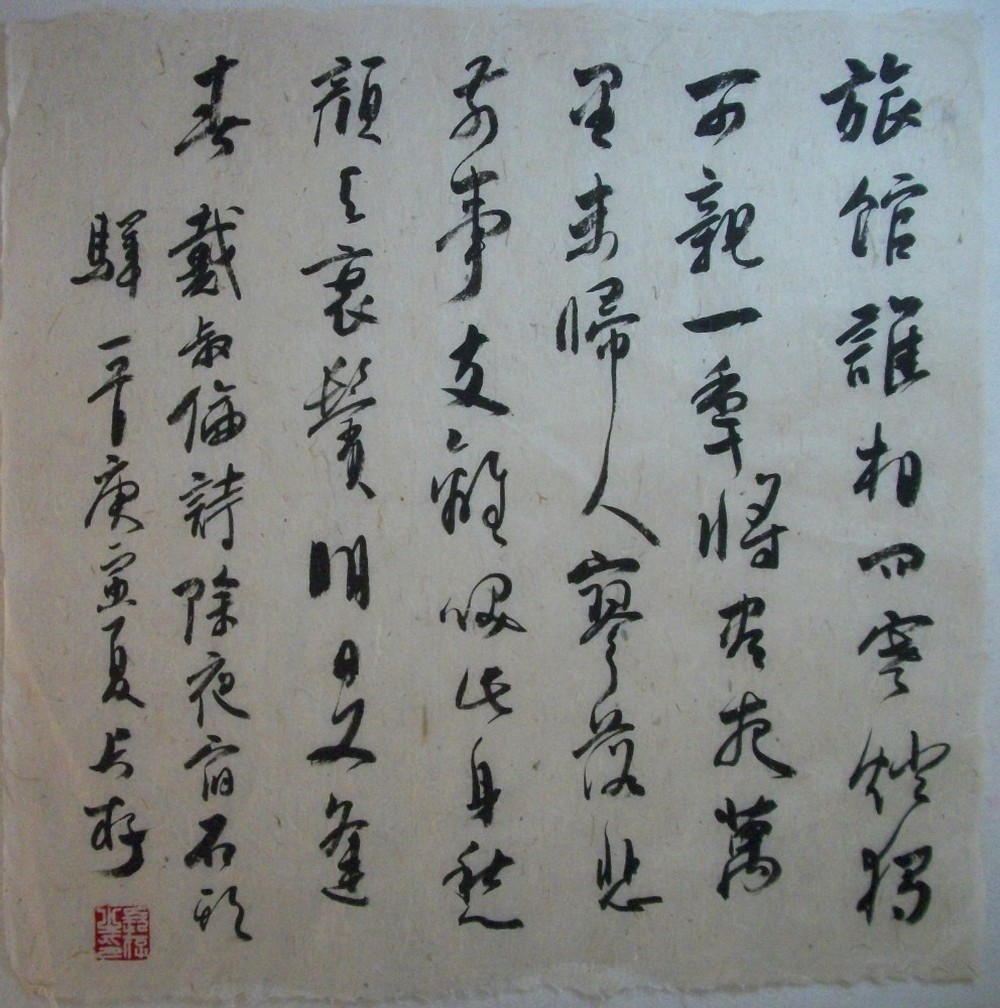 旅館誰相問寒燈獨
可親一年將盡夜萬
里未歸人寥落悲
前事支離咲此身愁
顏與衰鬢明日又逢
春 戴叔倫詩除夜宿石頭
驛一首庚寅夏